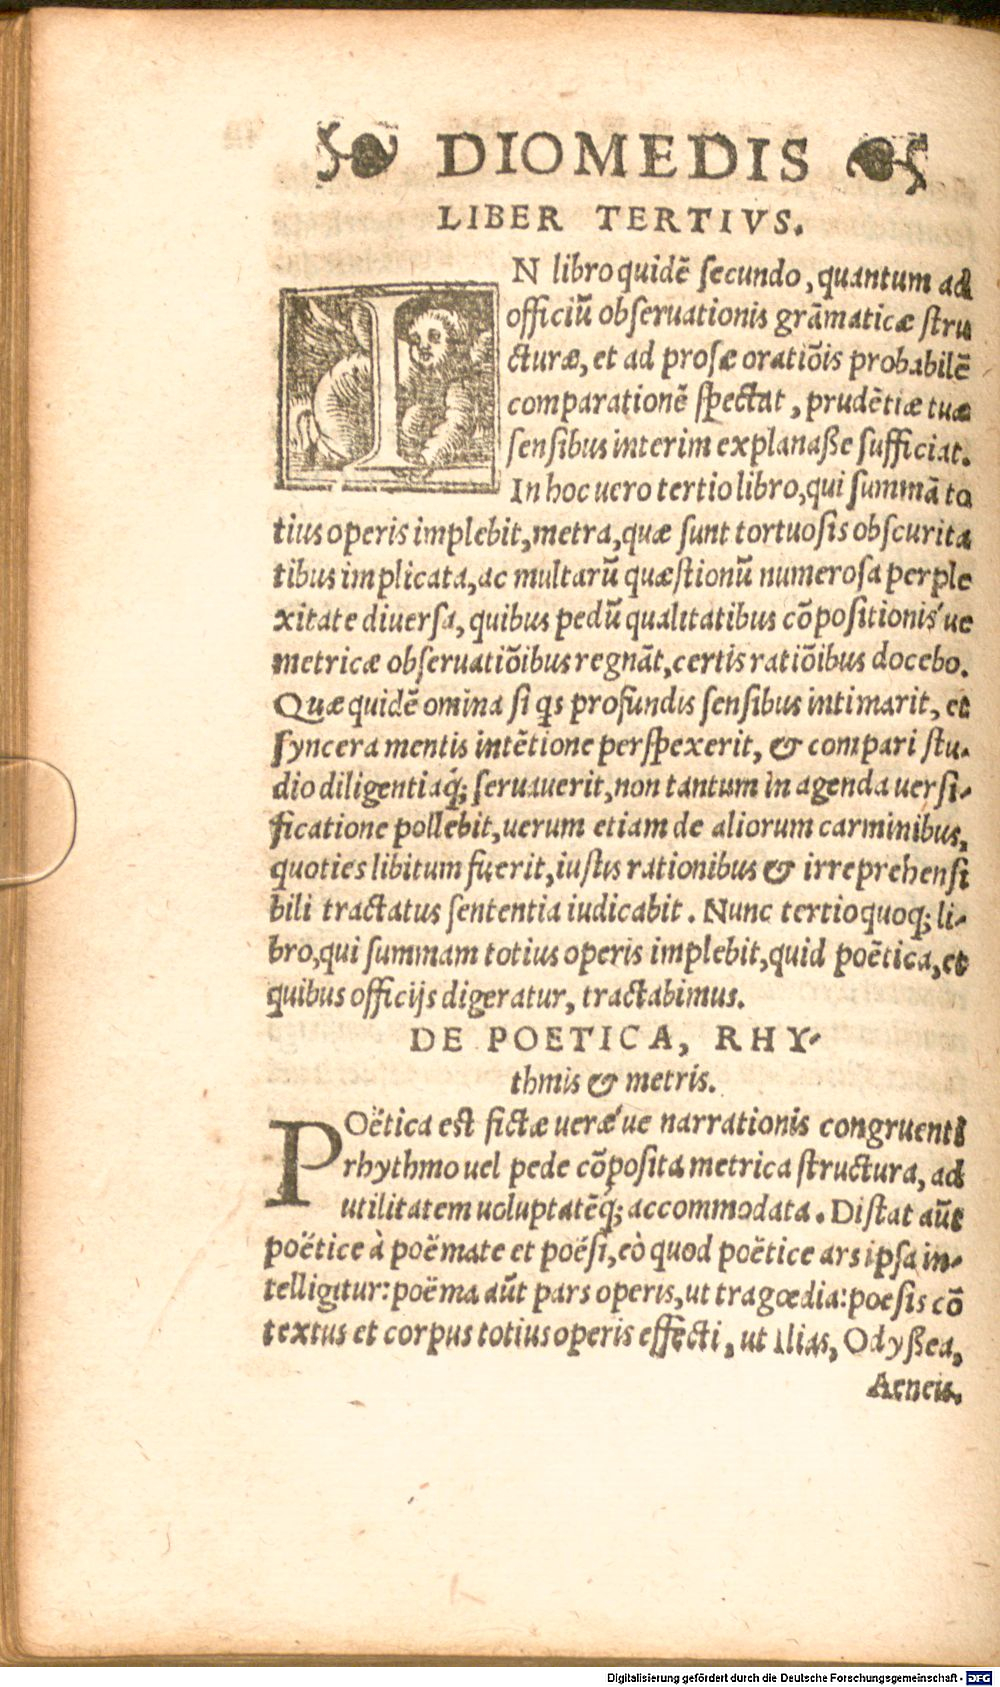 DIOMEDIS
LIBER TERTIVS.
IN libro quidē secundo, quantum ad
officiū obseruationis grāmaticæ stru
cturæ, et ad prosæ oratiōis probabilē
comparationē spectat, prudētiæ tuæ
sensibus interim explanaße sufficiat.
In hoc uero tertio libro, qui summā to
tius operis implebit, metra, quæ sunt tortuosis obscurita
tibus implicata, ac multarū quæstionū numerosa perple
xitate diuersa, quibus pedū qualitatibus cōpositionis´ue
metricæ obseruatiōibus regnāt, certis ratiōibus docebo.
Quæ quidē omina si qs profundis sensibus intimarit, et
syncera mentis intētione perspexerit, & compari stu-
dio diligentiaq́; seruauerit, non tantum in agenda uersi-
ficatione pollebit, uerum etiam de aliorum carminibus,
quoties libitum fuerit, iustis rationibus & irreprehensi
bili tractatus sententia iudicabit. Nunc tertio quoq; li-
bro, qui summam totius operis implebit, quid poëtica, et
quibus officijs digeratur, tractabimus.
DE POETICA, RHY-
thmis & metris.
POëtica est fictæ ueræ´ue narrationis congruenti
rhythmo uel pede cōposita metrica structura, ad
utilitatem uoluptatēq́; accommodata. Distat aūt
poëtice à poëmate et poësi, eò quod poëtice ars ipsa in-
telligitur: poëma aūt pars operis, ut tragœdia: poesis cō
textus et corpus totius operis effecti, ut Ilias, Odyßea,
Aeneis.
Digitalisierung gefördert durch die Deutsche Forschungsgemeinschaft - DFG